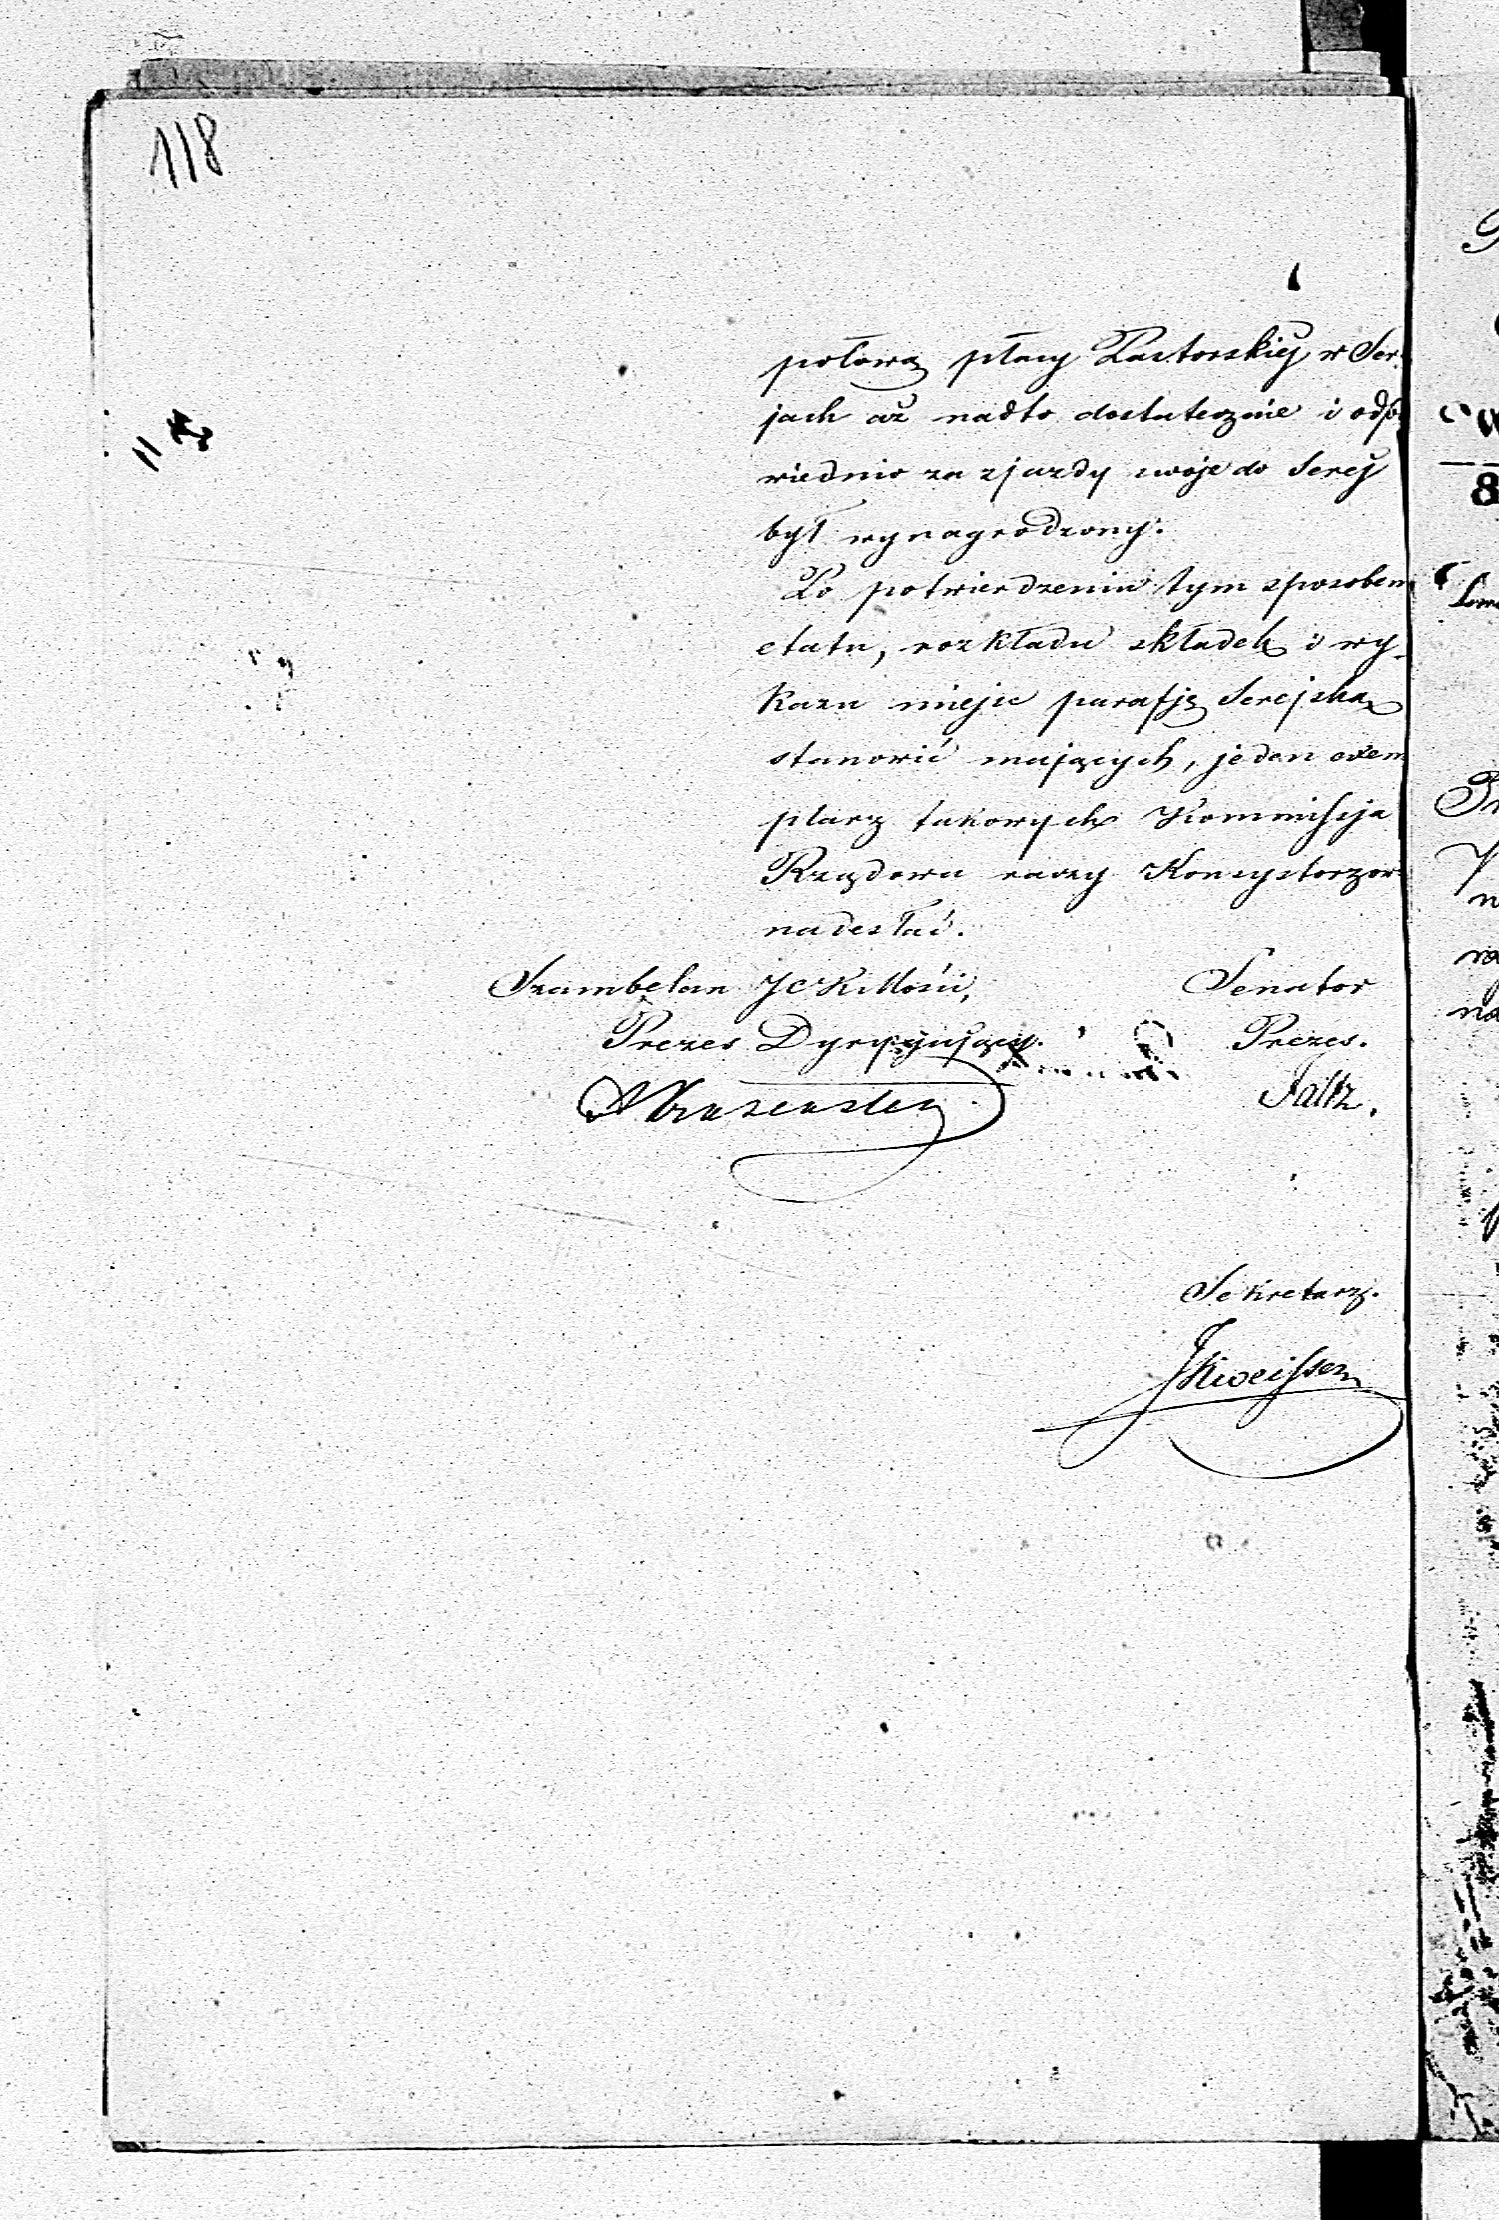 118
połową płacy Pastorskiej w Ser-
jach aż nadto dostatecznie i odpo
wiednio za zjazdy swoje do Serej
był wynagrodzony.
Po potwierdzeniu tym sposobem
etatu, rozkładu składek i wy-
kazu miejsc parafję Serejską
stanowić mających, jeden exem
plarz takowych Kommissja
Rządowa raczy Konsystorzow
nadesłać.
Szambelan JCKMości, Senator
Prezes Dyrygujący. Prezes.
Faltz.
Sekretarz.